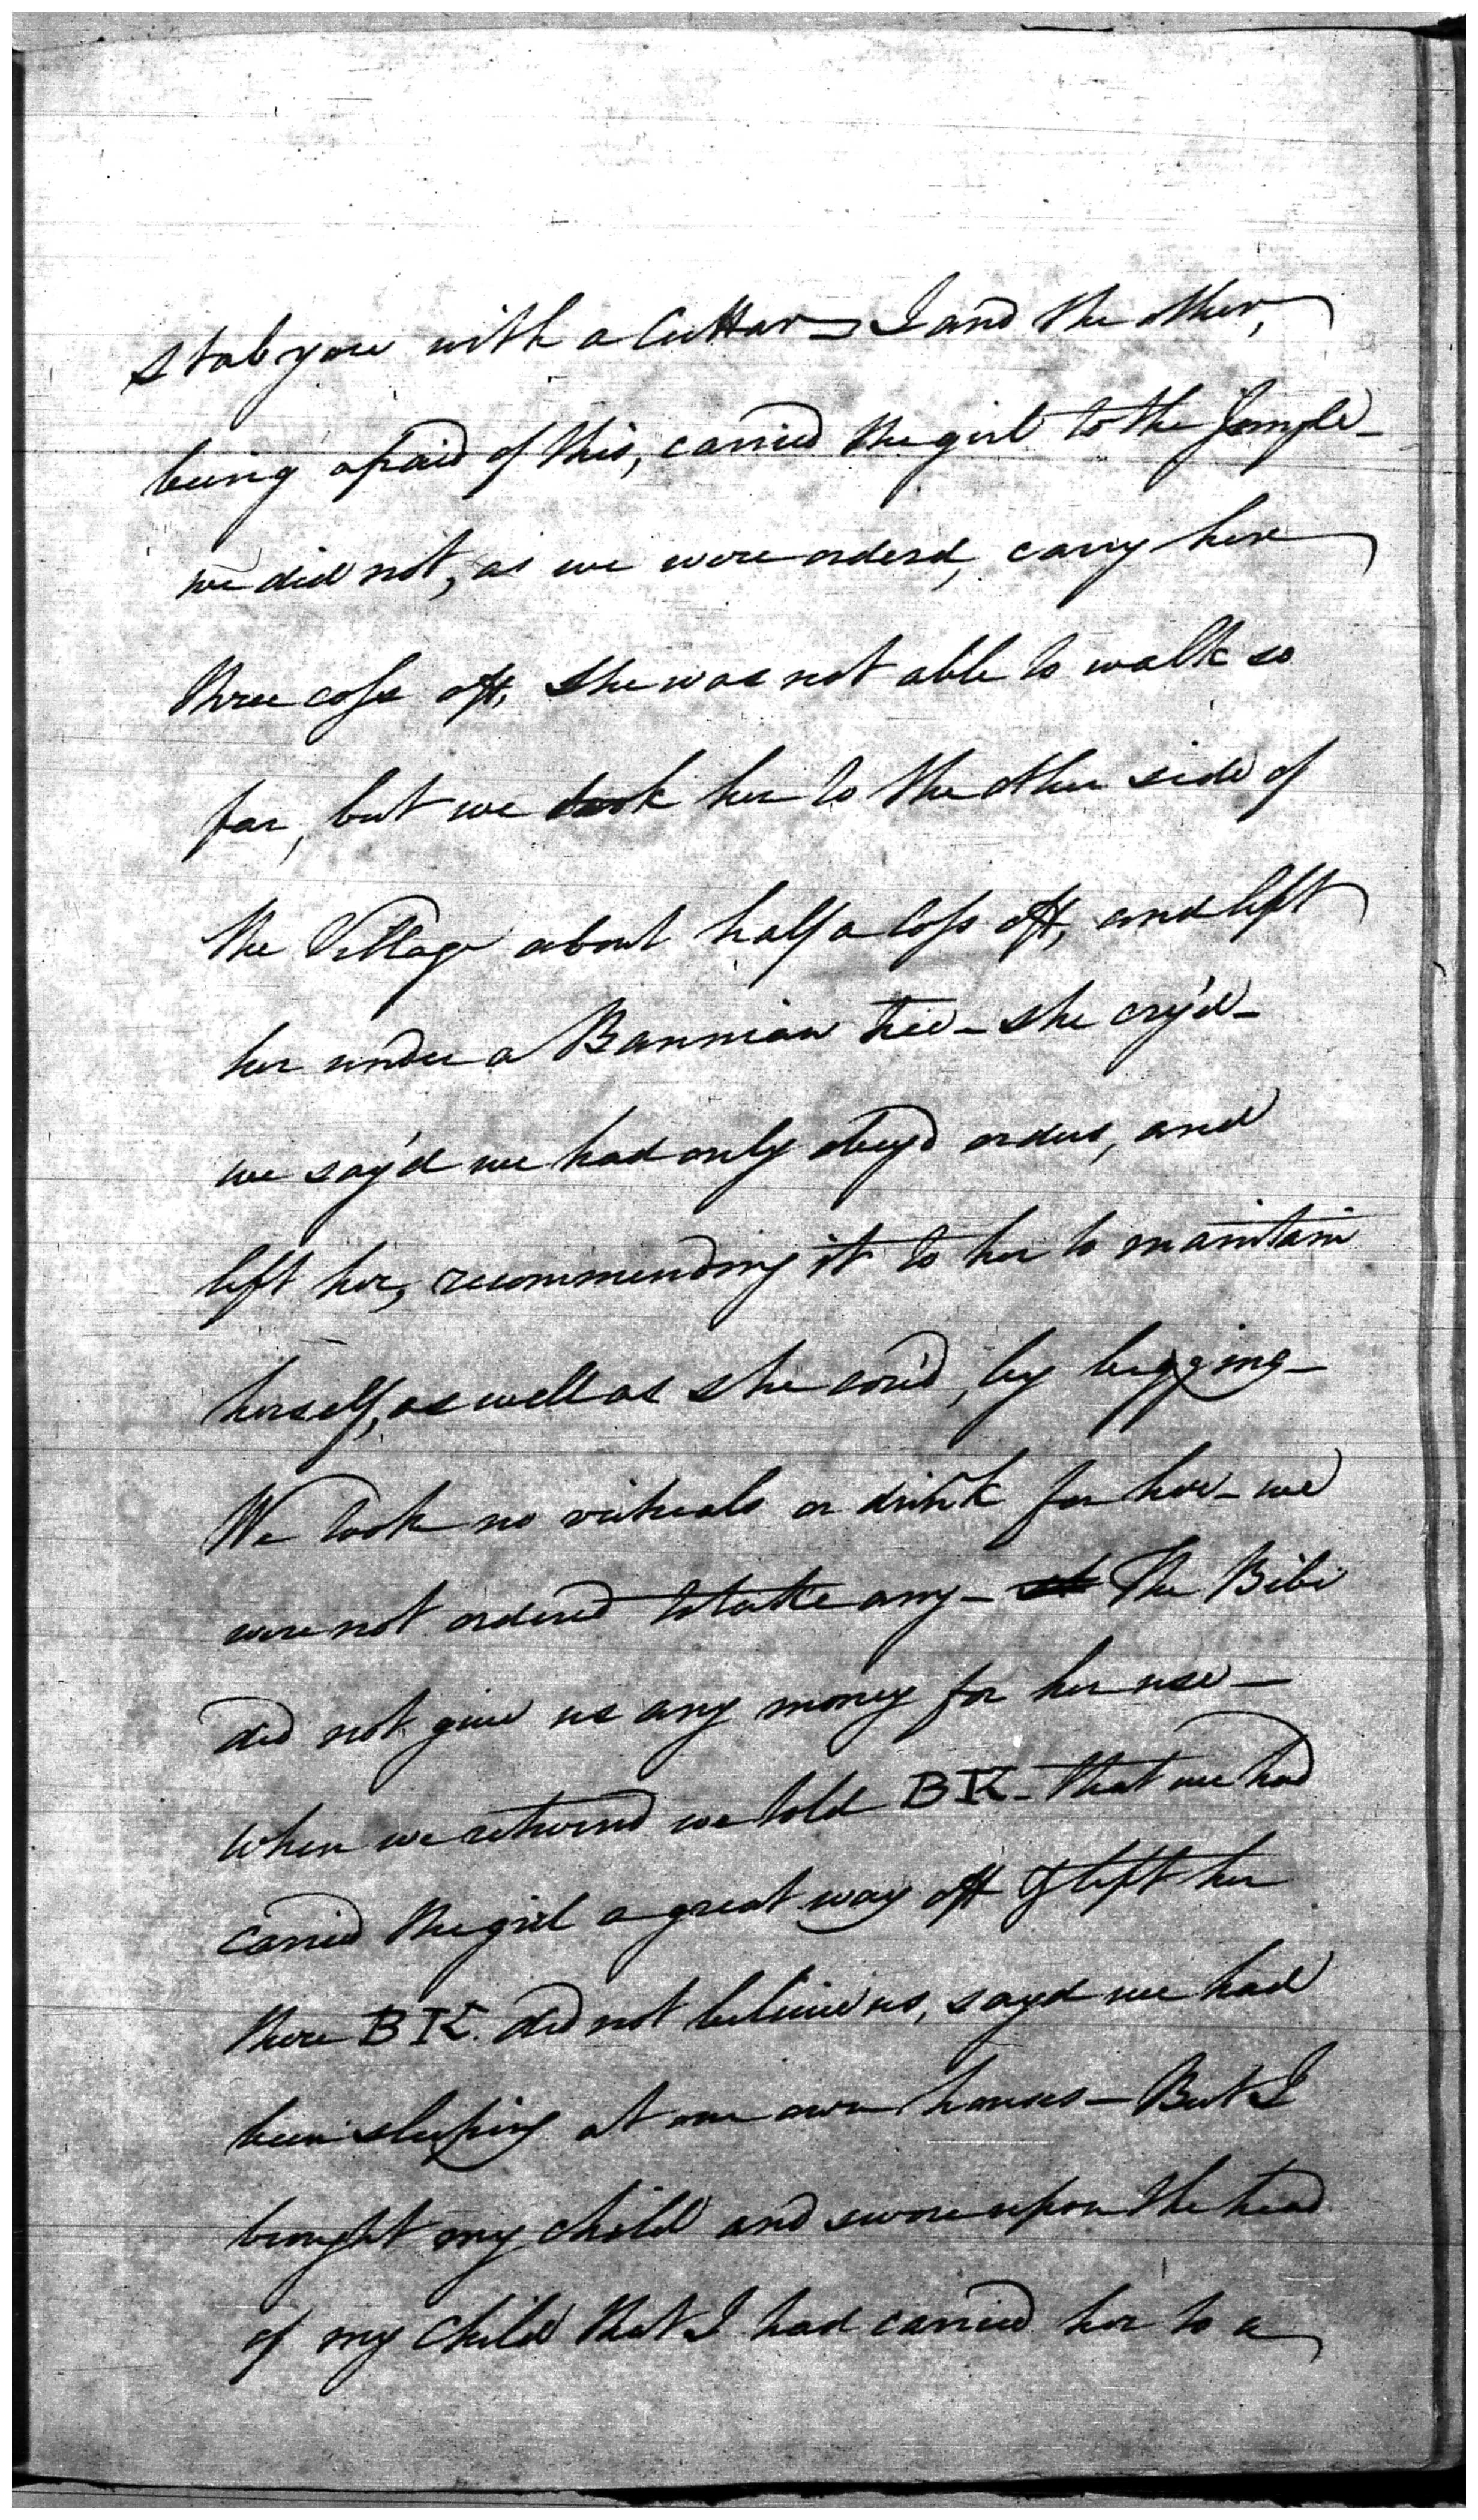 stab you with a Cuttar – I and the other,
being afraid of this, carried the girl to the Jungle –
we did not, as we were orderd, carry her
three coss off, she was not able to walk so
far, but we took her to the other side of
the Village about half a Coss off, and left
her under a Bannian tree – she cry'd –
we say'd we had only obey'd orders, and
left her, recommending it to her to maintain
herself, as well as she cou'd, by begging –
We took no victuals or drink for her – we
were not ordered to take any – The Bibi
did not give us any money for her use –
When we returned we told BK – that we had
carried the girl a great way off & left her
there BK. did not believe us, sayd we had
been sleeping at our own houses – But I
brought my child and swore upon the head
of my child that I had carried her to a